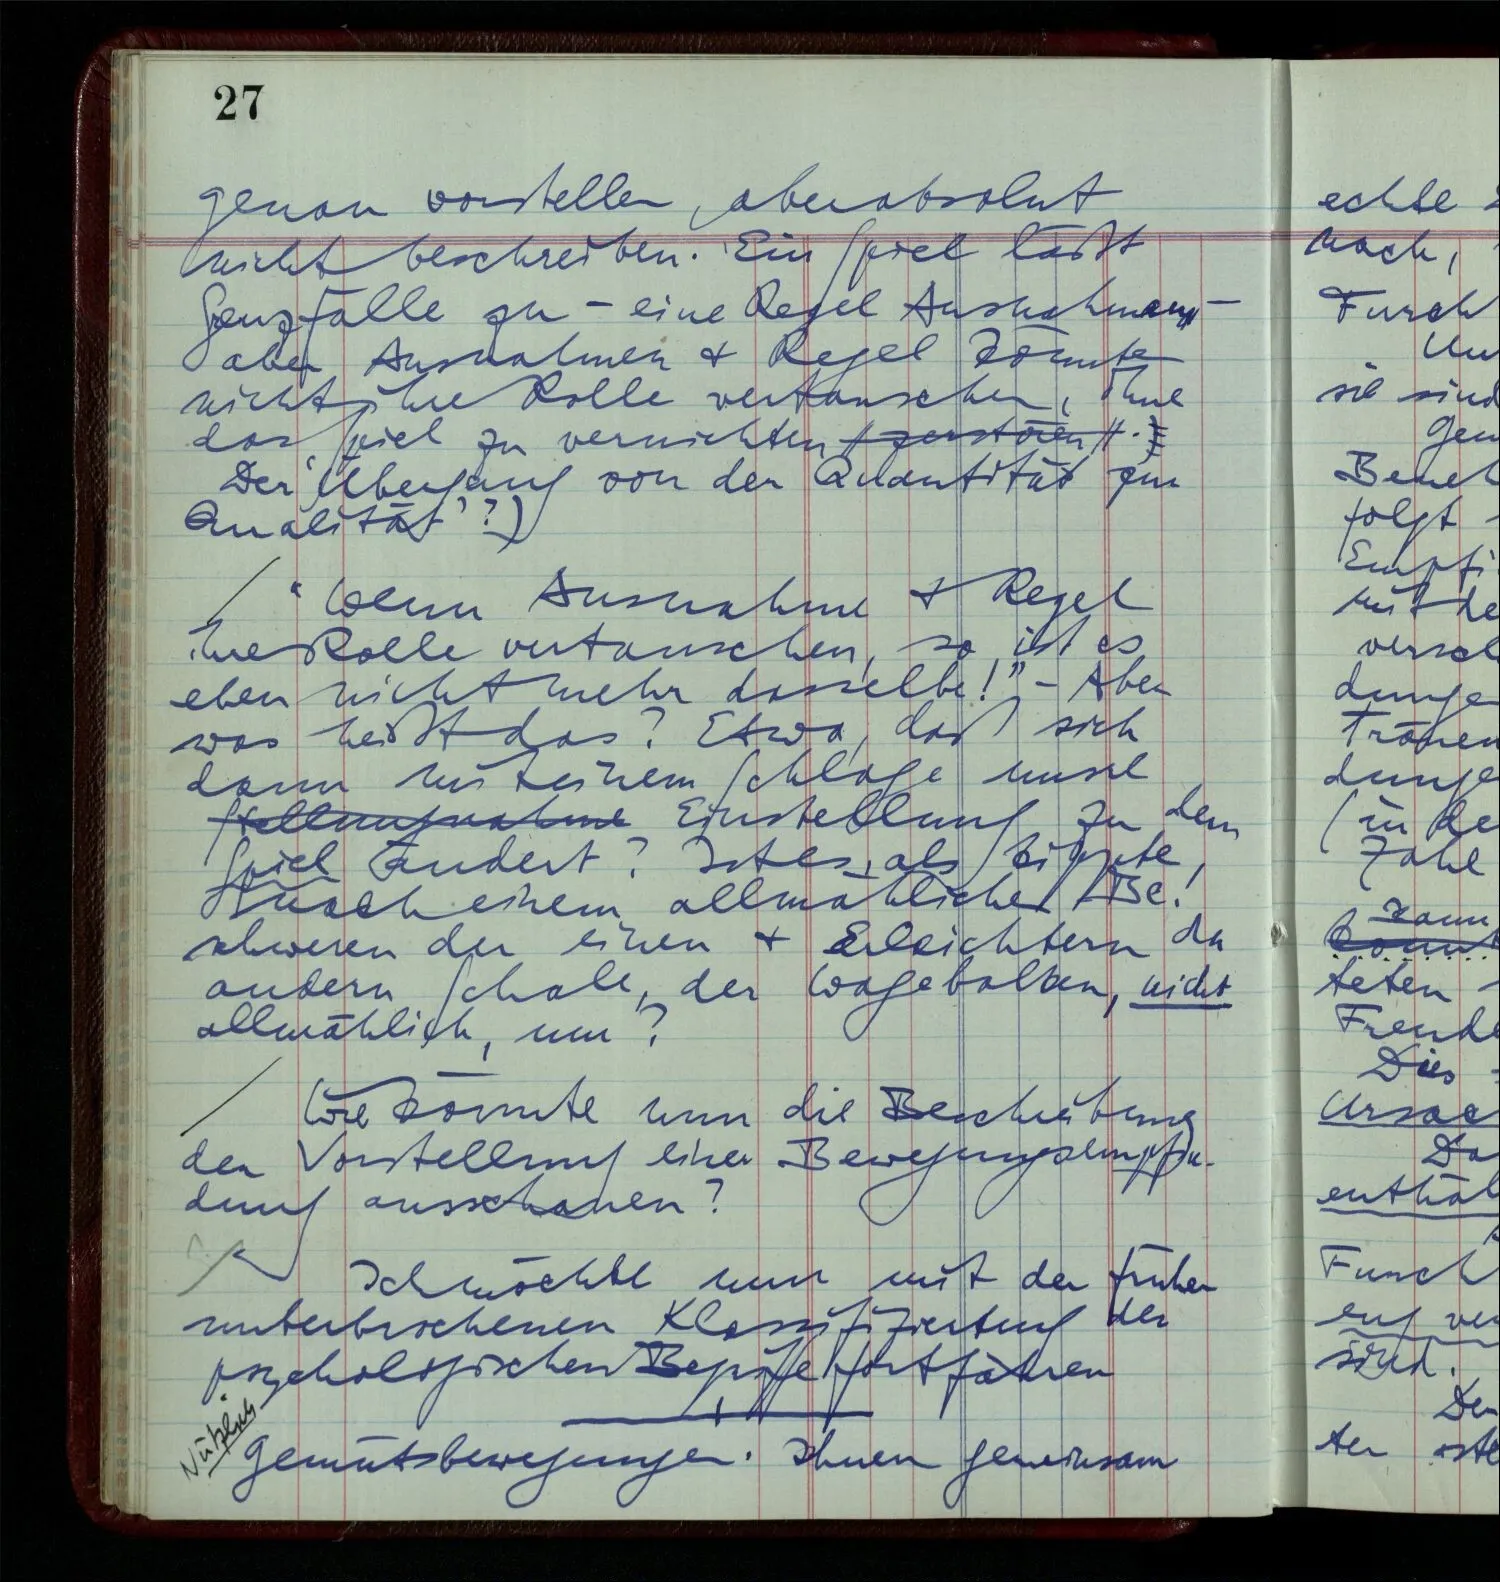 27
genau vorstellen, aber absolut
nicht beschreiben. Ein Spiel läßt
Grenzfälle zu – eine Regel Ausnahmen –
aber Ausnahmen & Regel könnte
nicht ihre Rolle vertauschen, ohne
das Spiel zu vernichten // zerstören //.
Der 'Übergang von der Quantität zur
Qualität'?)
/ "Wenn Ausnahme & Regel
ihre Rolle vertauschen, so ist es
eben nicht mehr dasselbe!" – Aber
was heißt das? Etwa, daß sich
dann mit einem Schlage unsre
Stellungnahme Einstellung zu dem
Spiel ändert? Ist es, als kippte,
nach einem allmählichen Be-
schweren der einen & Erleichtern der
andern Schale, der Wagebalken, nicht
allmählich, um?
/ Wie könnte nun die Beschreibung
der Vorstellung einer Bewegungsempfin-
dung ausschauen?
/ Ich möchte nun mit der früher
unterbrochenen Klassifizierung der
psychologischen Begriffe fortfahren
Nützlich
Gemütsbewegungen. Ihnen gemeinsam
echte
noch,
sie sind
folgt
Tränen
(in
kann
teten
Dies
sind.